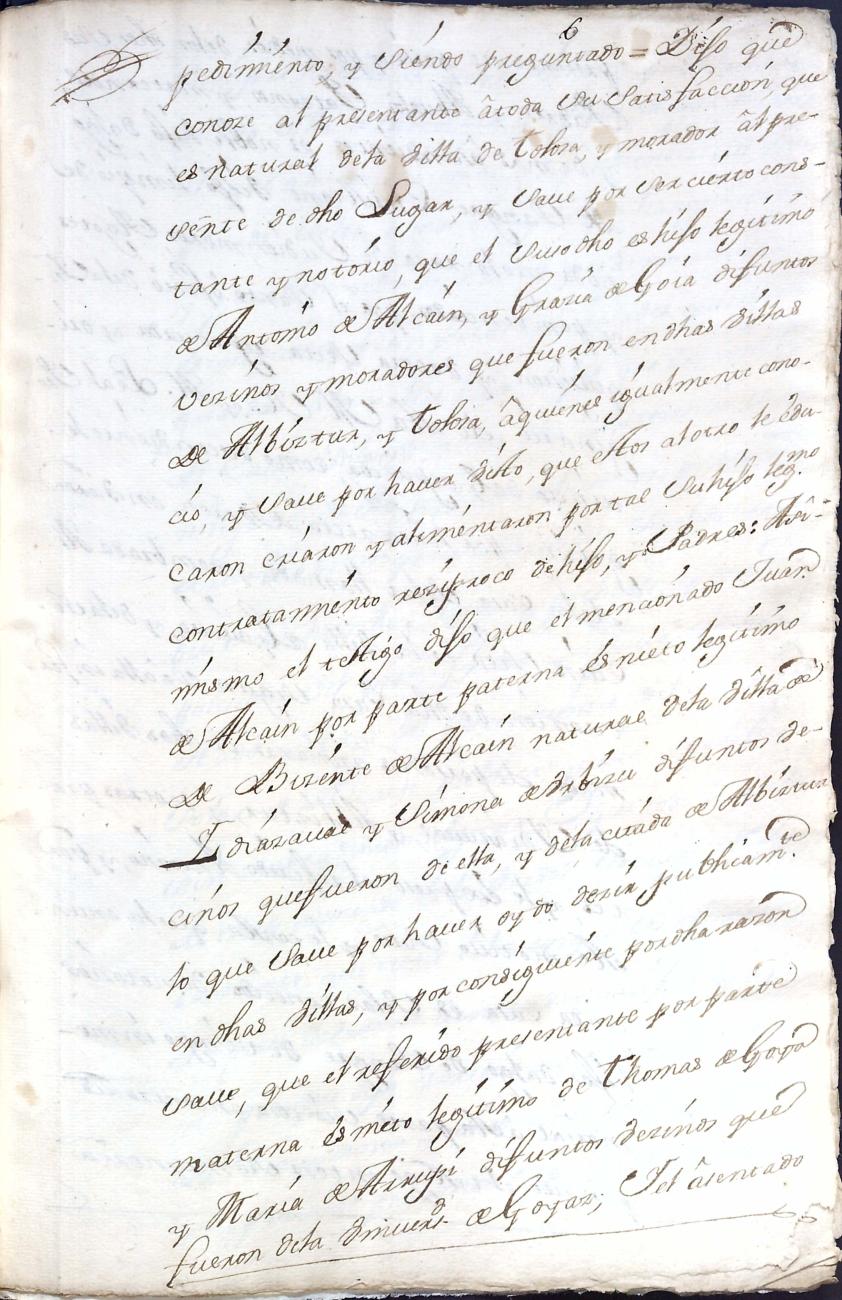 6
pedimiento, y siendo preguntado = Dijo que
conoze al presentante â toda su satisfacción, que
es natural dela Villa de Tolosa, y morador âl pre-
sente de dho Lugar, y save por ser cierto cons-
tante y notorio, que el suso dho es hijo legitimo
de Antonio de Alcain, y Grazia de Goia difuntos
vezinos y moradores que fueron en dhas Villas
de Albiztur, y Tolosa, â quienes igualmente cono-
ció, y save por haver visto, que estos al otro le édu-
caron criaron y alimentaron por tal su hijo legmo
contratamiento reziproco de hijo, y Padres: Asi-
mismo el testigo dijo que el mencionado Juan
de Alcain por parte paterna és nieto legitimo
de Bizente de Alcain natural dela Villa de
Idiazaval y Simona de Urbizu difuntos ve-
cinos que fueron de ella, y dela citada de Albiztur
lo que save por haver oydo dezir publicamte
en dhas Villas, y por consiguiente por dha razon
save, que el referido presentante por parte
materna és nieto legitimo de Thomas de Goya
y Maria de Arruyi difuntos vezinos que
fueron dela Univerd de Goyaz, I el âsentado